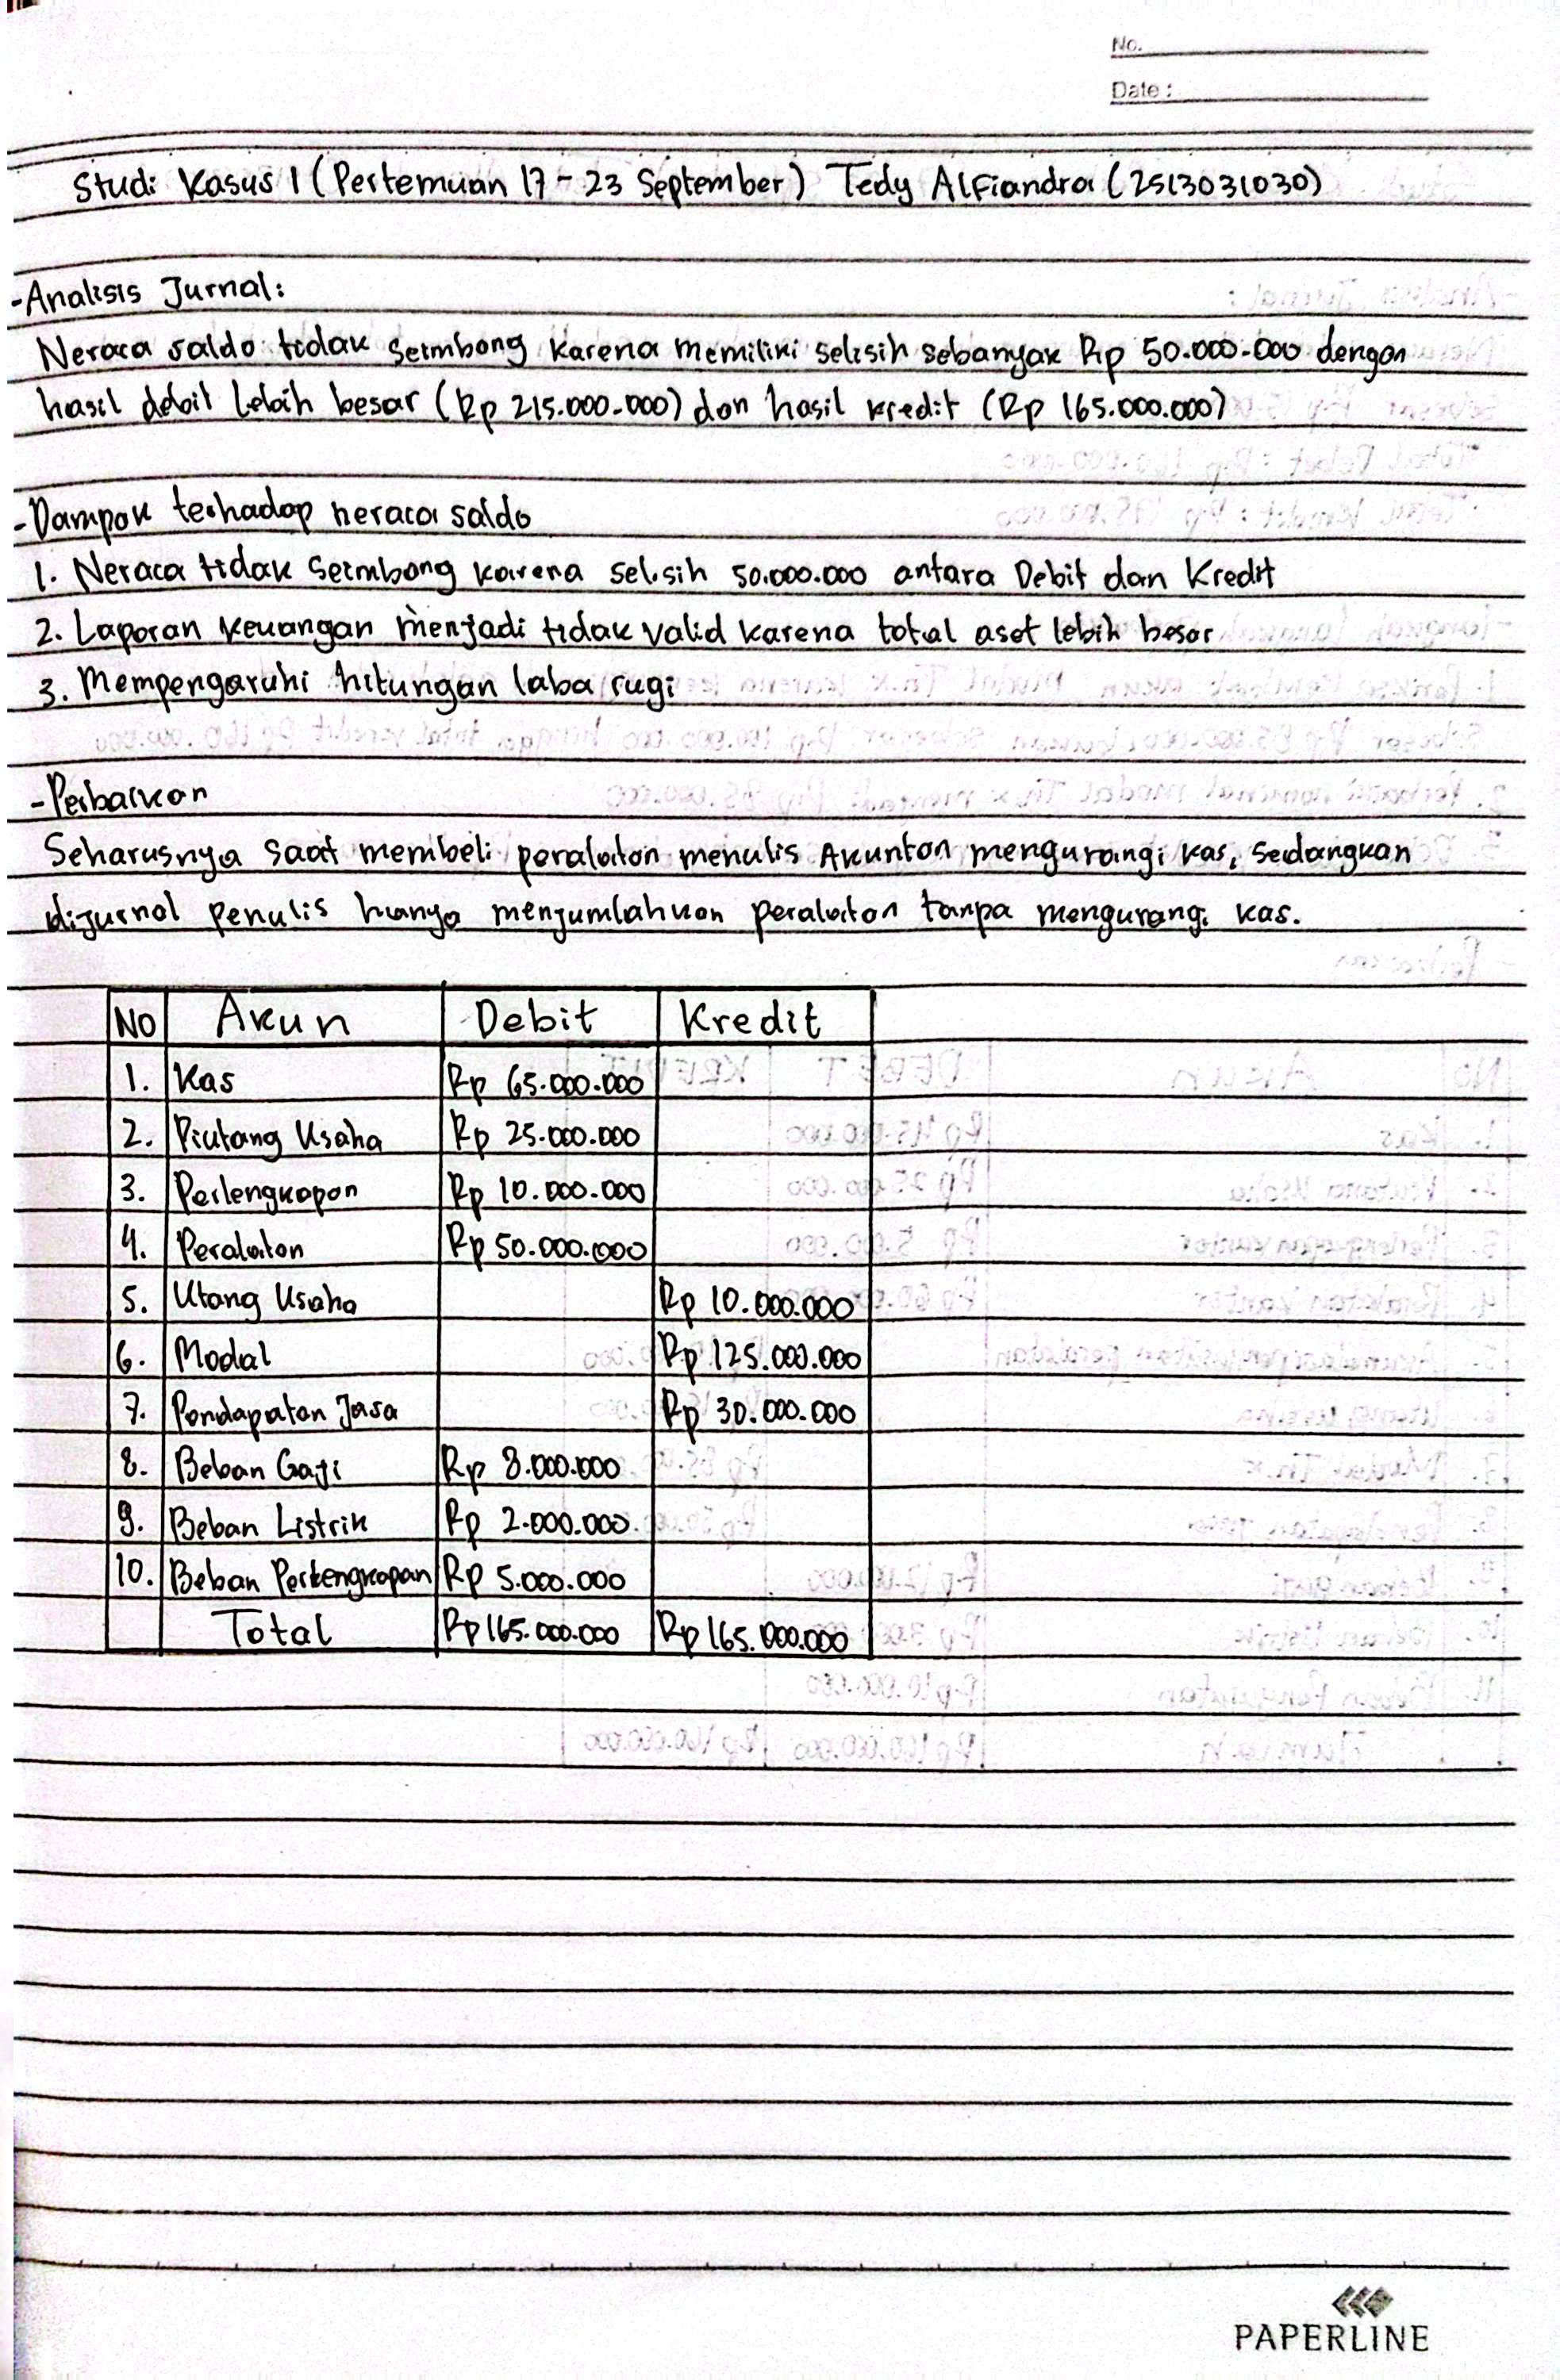 No.
Date :
Studi Kasus 1 (Pertemuan 17 - 23 September) Tedy Alfiandra (2513031030)
-Analisis Jurnal:
Neraca saldo tidak seimbang karena memiliki selisih sebanyak Rp 50.000.000 dengan
hasil debit lebih besar (Rp 215.000.000) dan hasil kredit (Rp 165.000.000)
-Dampak terhadap neraca saldo
1. Neraca tidak seimbang karena selisih 50.000.000 antara Debit dan Kredit
2. Laporan keuangan menjadi tidak valid karena total aset lebih besar
3. Mempengaruhi hitungan laba rugi
-Perbaikan
Seharusnya saat membeli peralatan menulis Akuntan mengurangi kas, sedangkan
dijurnal penulis hanya menjumlahkan peralatan tanpa mengurangi kas.
NO Akun Debit Kredit
1. Kas Rp 65.000.000
2. Piutang Usaha Rp 25.000.000
3. Perlengkapan Rp 10.000.000
4. Peralatan Rp 50.000.000
5. Utang Usaha Rp 10.000.000
6. Modal Rp 125.000.000
7. Pendapatan Jasa Rp 30.000.000
8. Beban Gaji Rp 8.000.000
9. Beban Listrik Rp 2.000.000
10. Beban Perlengkapan Rp 5.000.000
Total Rp 165.000.000 Rp 165.000.000
PAPERLINE